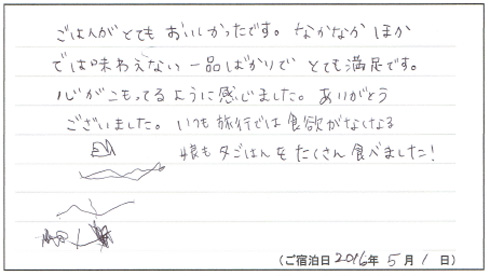 ごはんがとても おいしかったです。 なかなか ほか
では味わえない 一品ばかりで とても満足です。
心がこもってる ように 感じました。 ありがとう
ございました。 いつも 旅行では 食欲がなくなる
娘も 夕ごはんを たくさん 食べました!
(ご宿泊日 2016年 5月 1日)